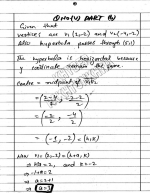 Q no (4) PART (b)
Given that
vertices are V₁(2,-2) and V₂(-4,-2)
Also hyperbola passes through (5,1)
The hyperbola is horizontal because
y coordinate remain the same.
Centre = midpoint of V₁V₂
= (2-4/2, -2-2/2)
= (-2/2, -4/2)
(-1,-2) = (h,k)
Now V₁ = (2,-2) = (h+a, k)
h+a=2, and k=-2
-1+a=2
a=2+1
a=3